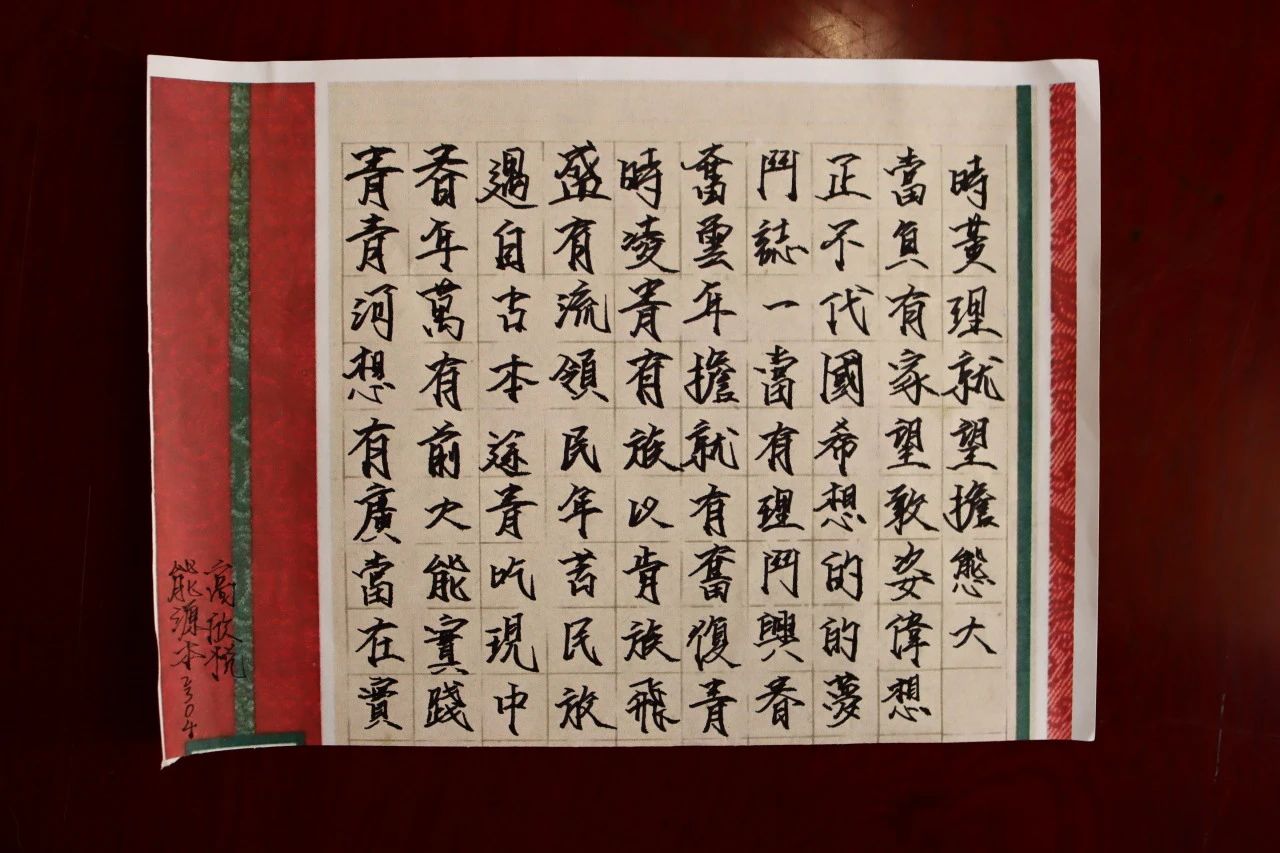 青春遇盛時奮鬥正當時
青年自有凌雲誌不負黃
河萬古流青年一代有理
想有本領有擔當國家就
有前途民族就有希望望
廣大青年以有理想敢擔
當能吃苦肯奮鬥的姿態
在實現民族復興的偉大
實踐中放飛青春夢想
高欣杭
能源本2304